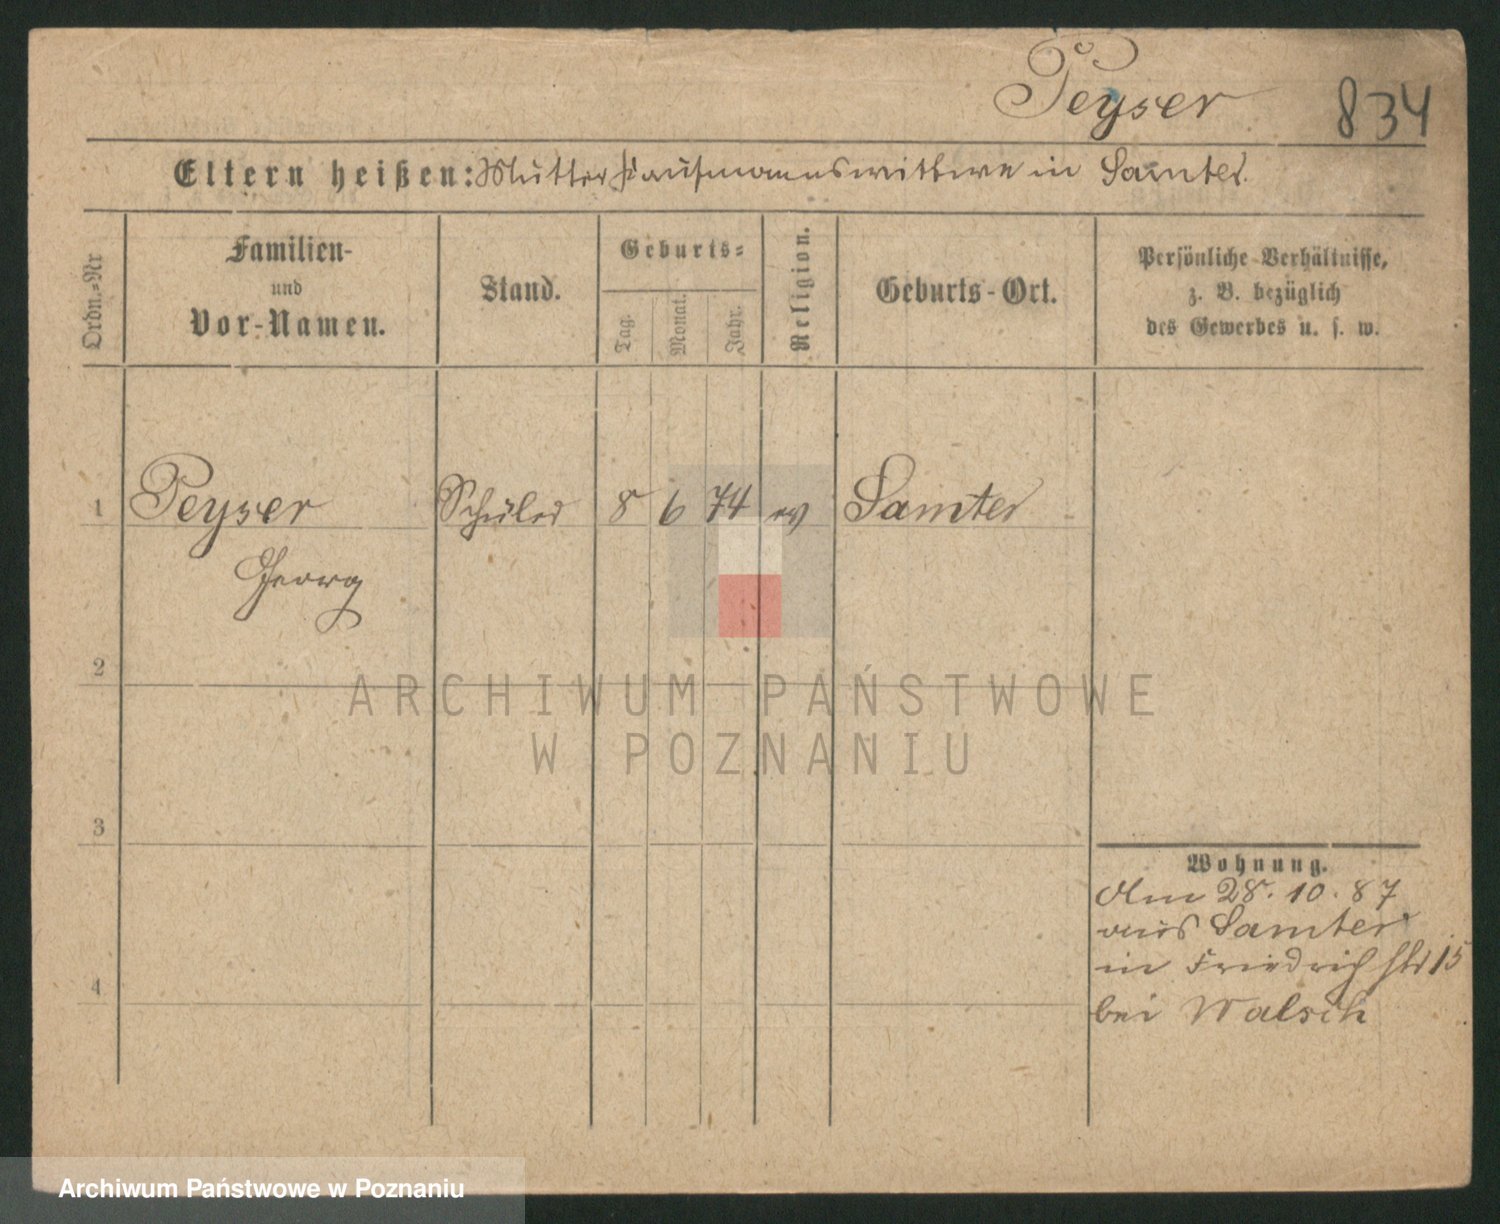 Peyser
834
Eltern heißen: Mutter Kaufmannswittwe in Samter.
Ordn.-Nr
Familien-
und
Vor-Namen.
Stand.
Geburts-
Tag.
Monat.
Jahr.
Religion.
Geburts-Ort.
Persönliche Verhältnisse,
z. B. bezüglich
des Gewerbes u. s. w.
1 Peyser Schüler 8 6 74 ev Samter
Georg
2
3
4
Wohnung.
Am 28. 10. 87
aus Samter
in Friedrichstr 15
bei Walsch
ARCHIWUM PAŃSTWOWE
W POZNANIU
Archiwum Państwowe w Poznaniu